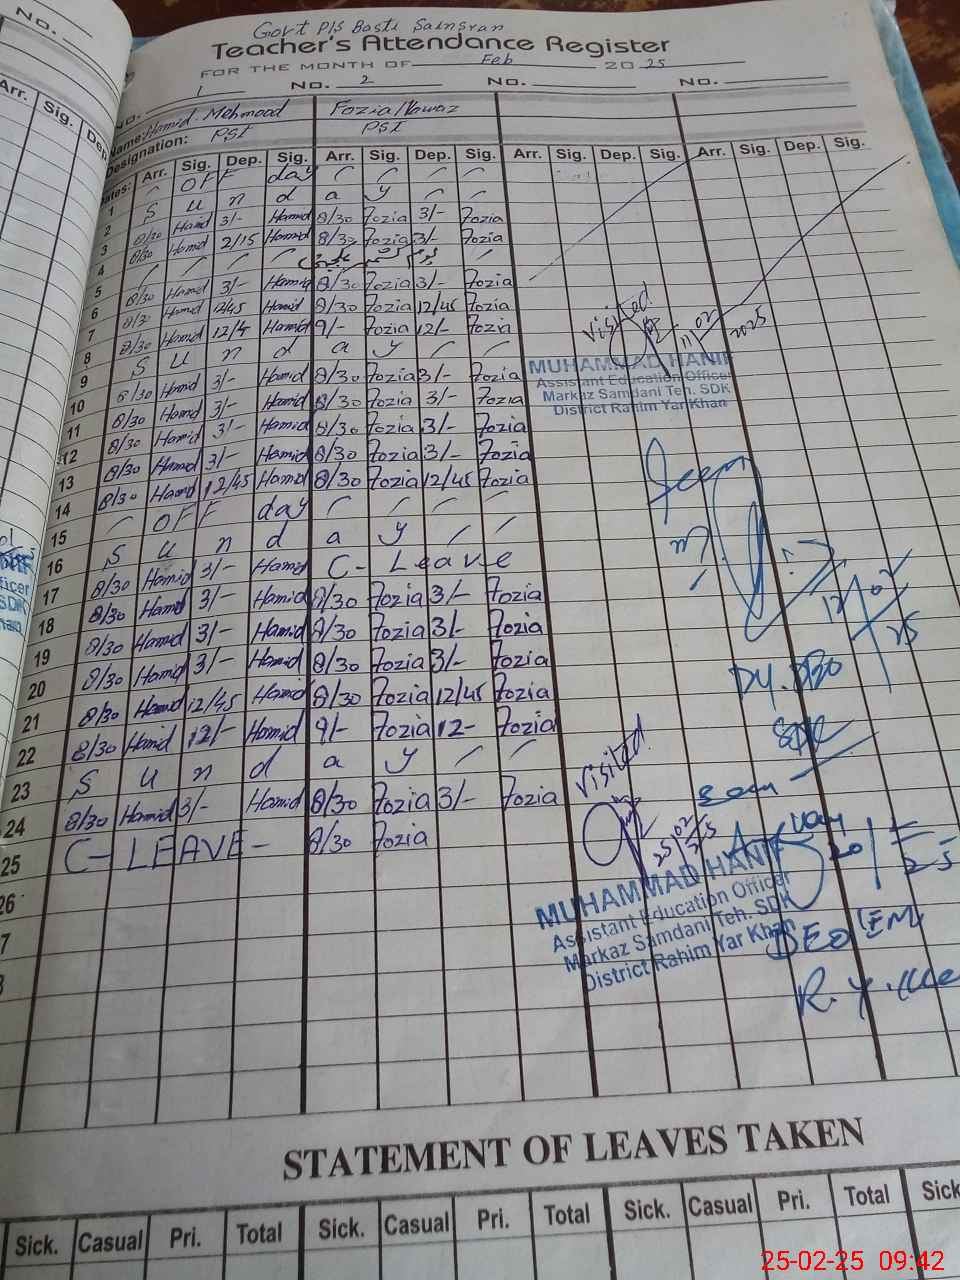 No.
Govt P/S Basti Sainsran
Teacher's Attendance Register
FOR THE MONTH OF Feb 2025
No. 1 No. 2 No. No.
Name: Hamid Mehmood Fozia Nawaz
Designation: PST PST
Dates: Arr. Sig. Dep. Sig. Arr. Sig. Dep. Sig. Arr. Sig. Dep. Sig. Arr. Sig. Dep. Sig.
1 OFF day
2 S u n d a y
3 8/30 Hamid 3/- Hamid 8/30 Fozia 3/- Fozia
4 8/30 Hamid 2/15 Hamid 8/30 Fozia 3/- Fozia
5 یوم کشمیر
6 8/30 Hamid 3/- Hamid 8/30 Fozia 3/- Fozia
7 8/30 Hamid 12/45 Hamid 8/30 Fozia 12/45 Fozia
8 8/30 Hamid 12/ Hamid 9/- Fozia 12/- Fozia
9 S u n d a y
10 8/30 Hamid 3/- Hamid 8/30 Fozia 3/- Fozia
11 8/30 Hamid 3/- Hamid 8/30 Fozia 3/- Fozia
12 8/30 Hamid 3/- Hamid 8/30 Fozia 3/- Fozia
13 8/30 Hamid 3/- Hamid 8/30 Fozia 3/- Fozia
14 8/30 Hamid 12/45 Hamid 8/30 Fozia 12/45 Fozia
15 OFF day
16 S u n d a y
17 8/30 Hamid 3/- Hamid C- Leave
18 8/30 Hamid 3/- Hamid 8/30 Fozia 3/- Fozia
19 8/30 Hamid 3/- Hamid 8/30 Fozia 3/- Fozia
20 8/30 Hamid 3/- Hamid 8/30 Fozia 3/- Fozia
21 8/30 Hamid 12/45 Hamid 8/30 Fozia 12/45 Fozia
22 8/30 Hamid 12/- Hamid 9/- Fozia 12- Fozia
23 S u n d a y
24 8/30 Hamid 3/- Hamid 8/30 Fozia 3/- Fozia
25 C- LEAVE- 8/30 Fozia
26
Visited
11/02/2025
MUHAMMAD HANIF
Assistant Education Officer
Markaz Samdani Teh. SDK
District Rahim Yar Khan
Seen
12/02/25
Dy. DEO
SDK
Visited
25/02/25
Seen
MUHAMMAD HANIF
Assistant Education Officer
Markaz Samdani Teh. SDK
District Rahim Yar Khan
DEO (EM)
R.Y.Khan
STATEMENT OF LEAVES TAKEN
Sick. Casual Pri. Total Sick. Casual Pri. Total Sick. Casual Pri. Total Sick
25-02-25 09:42